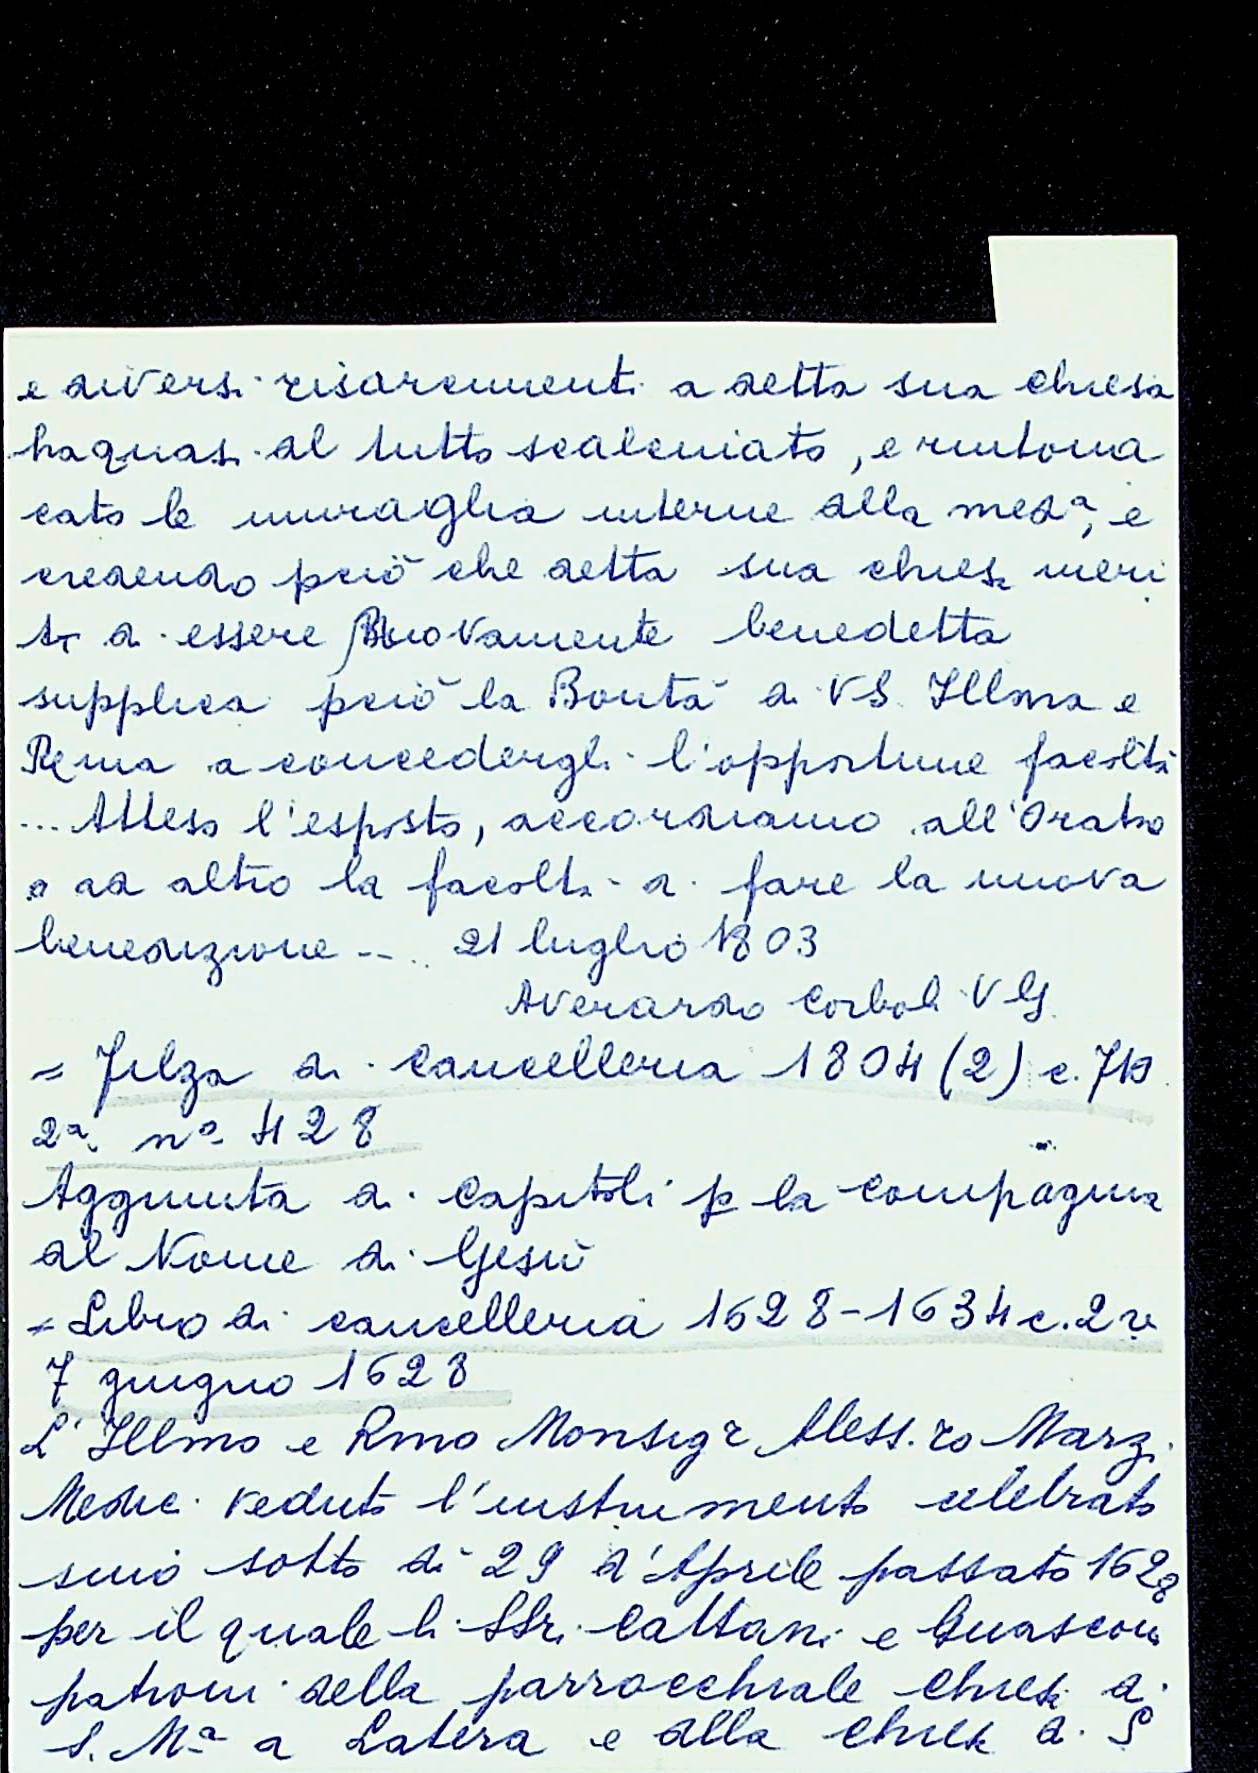 e diversi risarcimenti a detta sua chiesa
ha quasi al tutto scalcinato, e rintona
cato le muraglia interne alla med.ª, e
credendo pciò che detta sua chiesa meri
ti di essere nuovamente benedetta
supplica pciò la Bontà di VS. Illma e
Rema a concedergli l'opportune facoltà
... Atteso l'esposto, accordiamo all'Orato
o ad altro la facoltà di fare la nuova
benedizione -... 21 luglio 1803
Averardo Corboli VG
= Filza di cancelleria 1804 (2) c. 719
2ª. nº. 428
Aggiunta di capitoli p la compagnia
al Nome di Gesù
= Libro di cancelleria 1628-1634 c. 2 v
7 giugno 1628
L'Illmo e Rmo Monsigr Aless.ro Marzi
Medici veduto l'instrumento celebrato
sino sotto dì 29 d'Aprile passato 1628
per il quale li SSri Cattani e Guasconi
patroni della parrocchiale chiesa di
S. Mª a Latera e alla chiesa di S